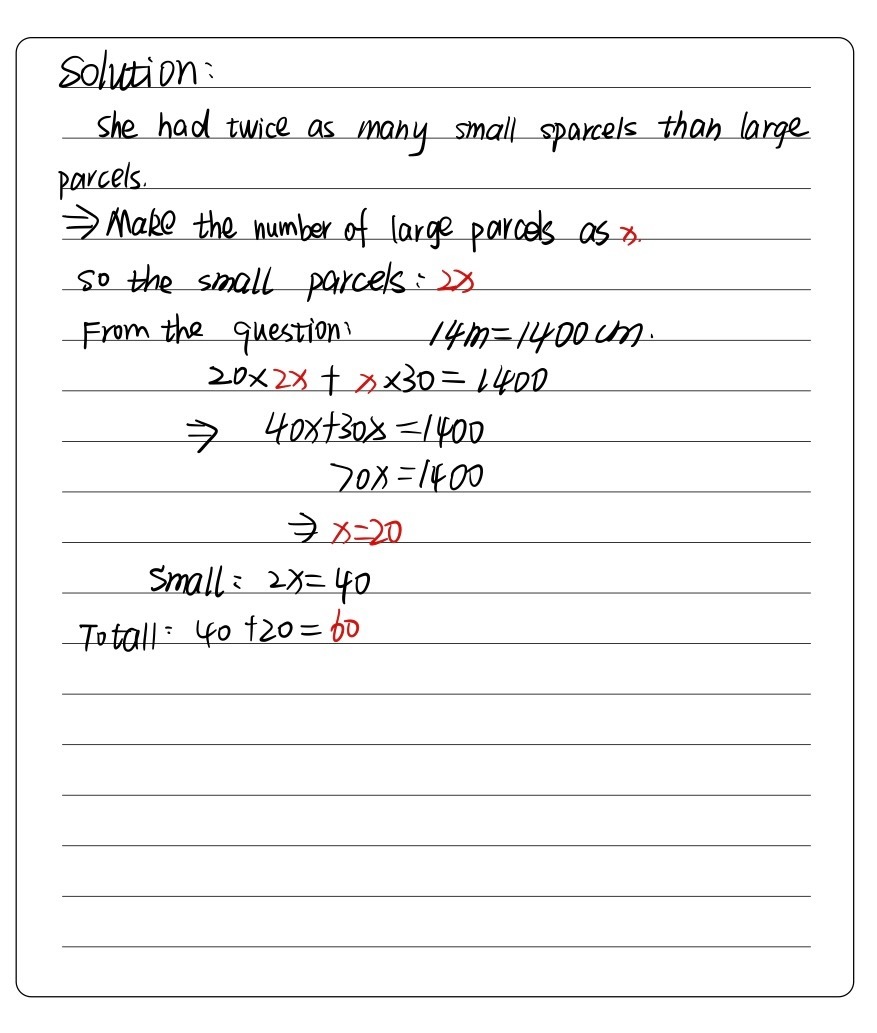 Solution:
She had twice as many small sparcels than large
parcels.
⇒ Make the number of large parcels as x.
so the small parcels: 2x
From the question: 14m=1400cm.
20×2x + x×30=1400
⇒ 40x+30x=1400
70x=1400
⇒ x=20
Small: 2x=40
Totall: 40+20=60